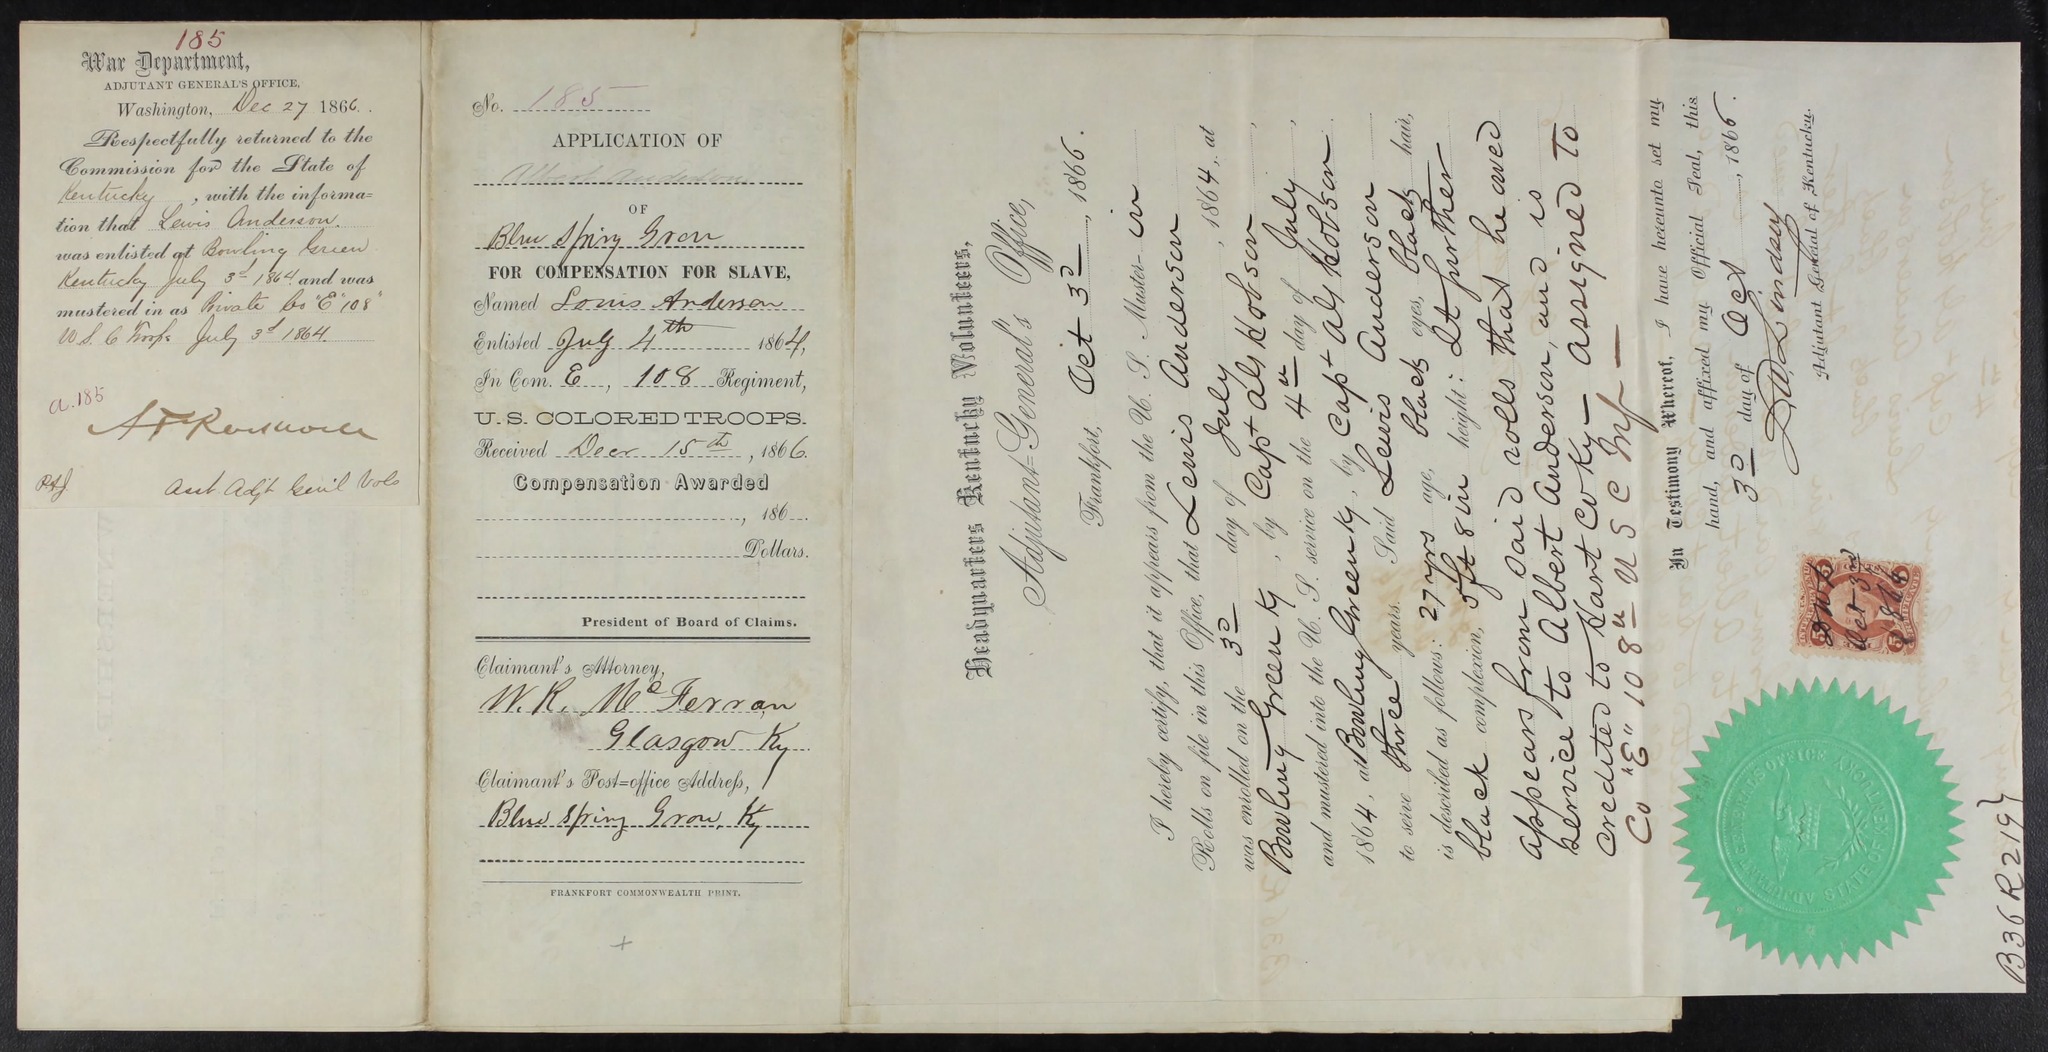 185
War Department,
ADJUTANT GENERAL'S OFFICE,
Washington, Dec 27 1866.
Respectfully returned to the
Commission for the State of
Kentucky, with the informa=
tion that Lewis Anderson
was enlisted at Bowling Green
Kentucky July 3d 1864 and was
mustered in as Private Co "E" 108"
U.S. C Troops July 3d 1864.
a. 185
Asst Adjt Genl Vols
No. 185
APPLICATION OF
Albert Anderson
OF
Blue Spring Grove
FOR COMPENSATION FOR SLAVE,
Named Louis Anderson
Enlisted July 4th 1864,
In Com. E, 108 Regiment,
U.S. COLORED TROOPS.
Received Decr 15th, 1866.
Compensation Awarded
, 186
Dollars.
President of Board of Claims.
Claimant's Attorney,
W. R. McFerran
Glasgow Ky
Claimant's Post=office Address,
Blue Spring Grove, Ky
FRANKFORT COMMONWEALTH PRINT.
Headquarters Kentucky Volunteers,
Adjutant=General's Office,
Frankfort, Oct 3d, 1866.
I hereby certify, that it appears from the U. S. Muster-in
Rolls on file in this Office, that Lewis Anderson
was enrolled on the 3d day of July, 1864, at
Bowling Green Ky, by Capt A G Hobson,
and mustered into the U. S. service on the 4" day of July,
1864, at Bowling Green Ky, by Capt A G Hobson
to serve three years. Said Lewis Anderson
is described as follows: 27 yrs age, black eyes, black hair,
black complexion, 5ft 8 in height: It further
appears from said rolls that he owed
service to Albert Anderson, and is
credited to Hart Co Ky - assigned to
Co "E" 108" U S C Inf -
In Testimony Whereof, I have hereunto set my
hand, and affixed my Official Seal, this
3d day of Oct, 1866.
D W Lindsey
Adjutant General of Kentucky.
D W L
Oct 3d
1866
ADJUTANT GENERAL'S OFFICE
STATE OF KENTUCKY
B36 R219